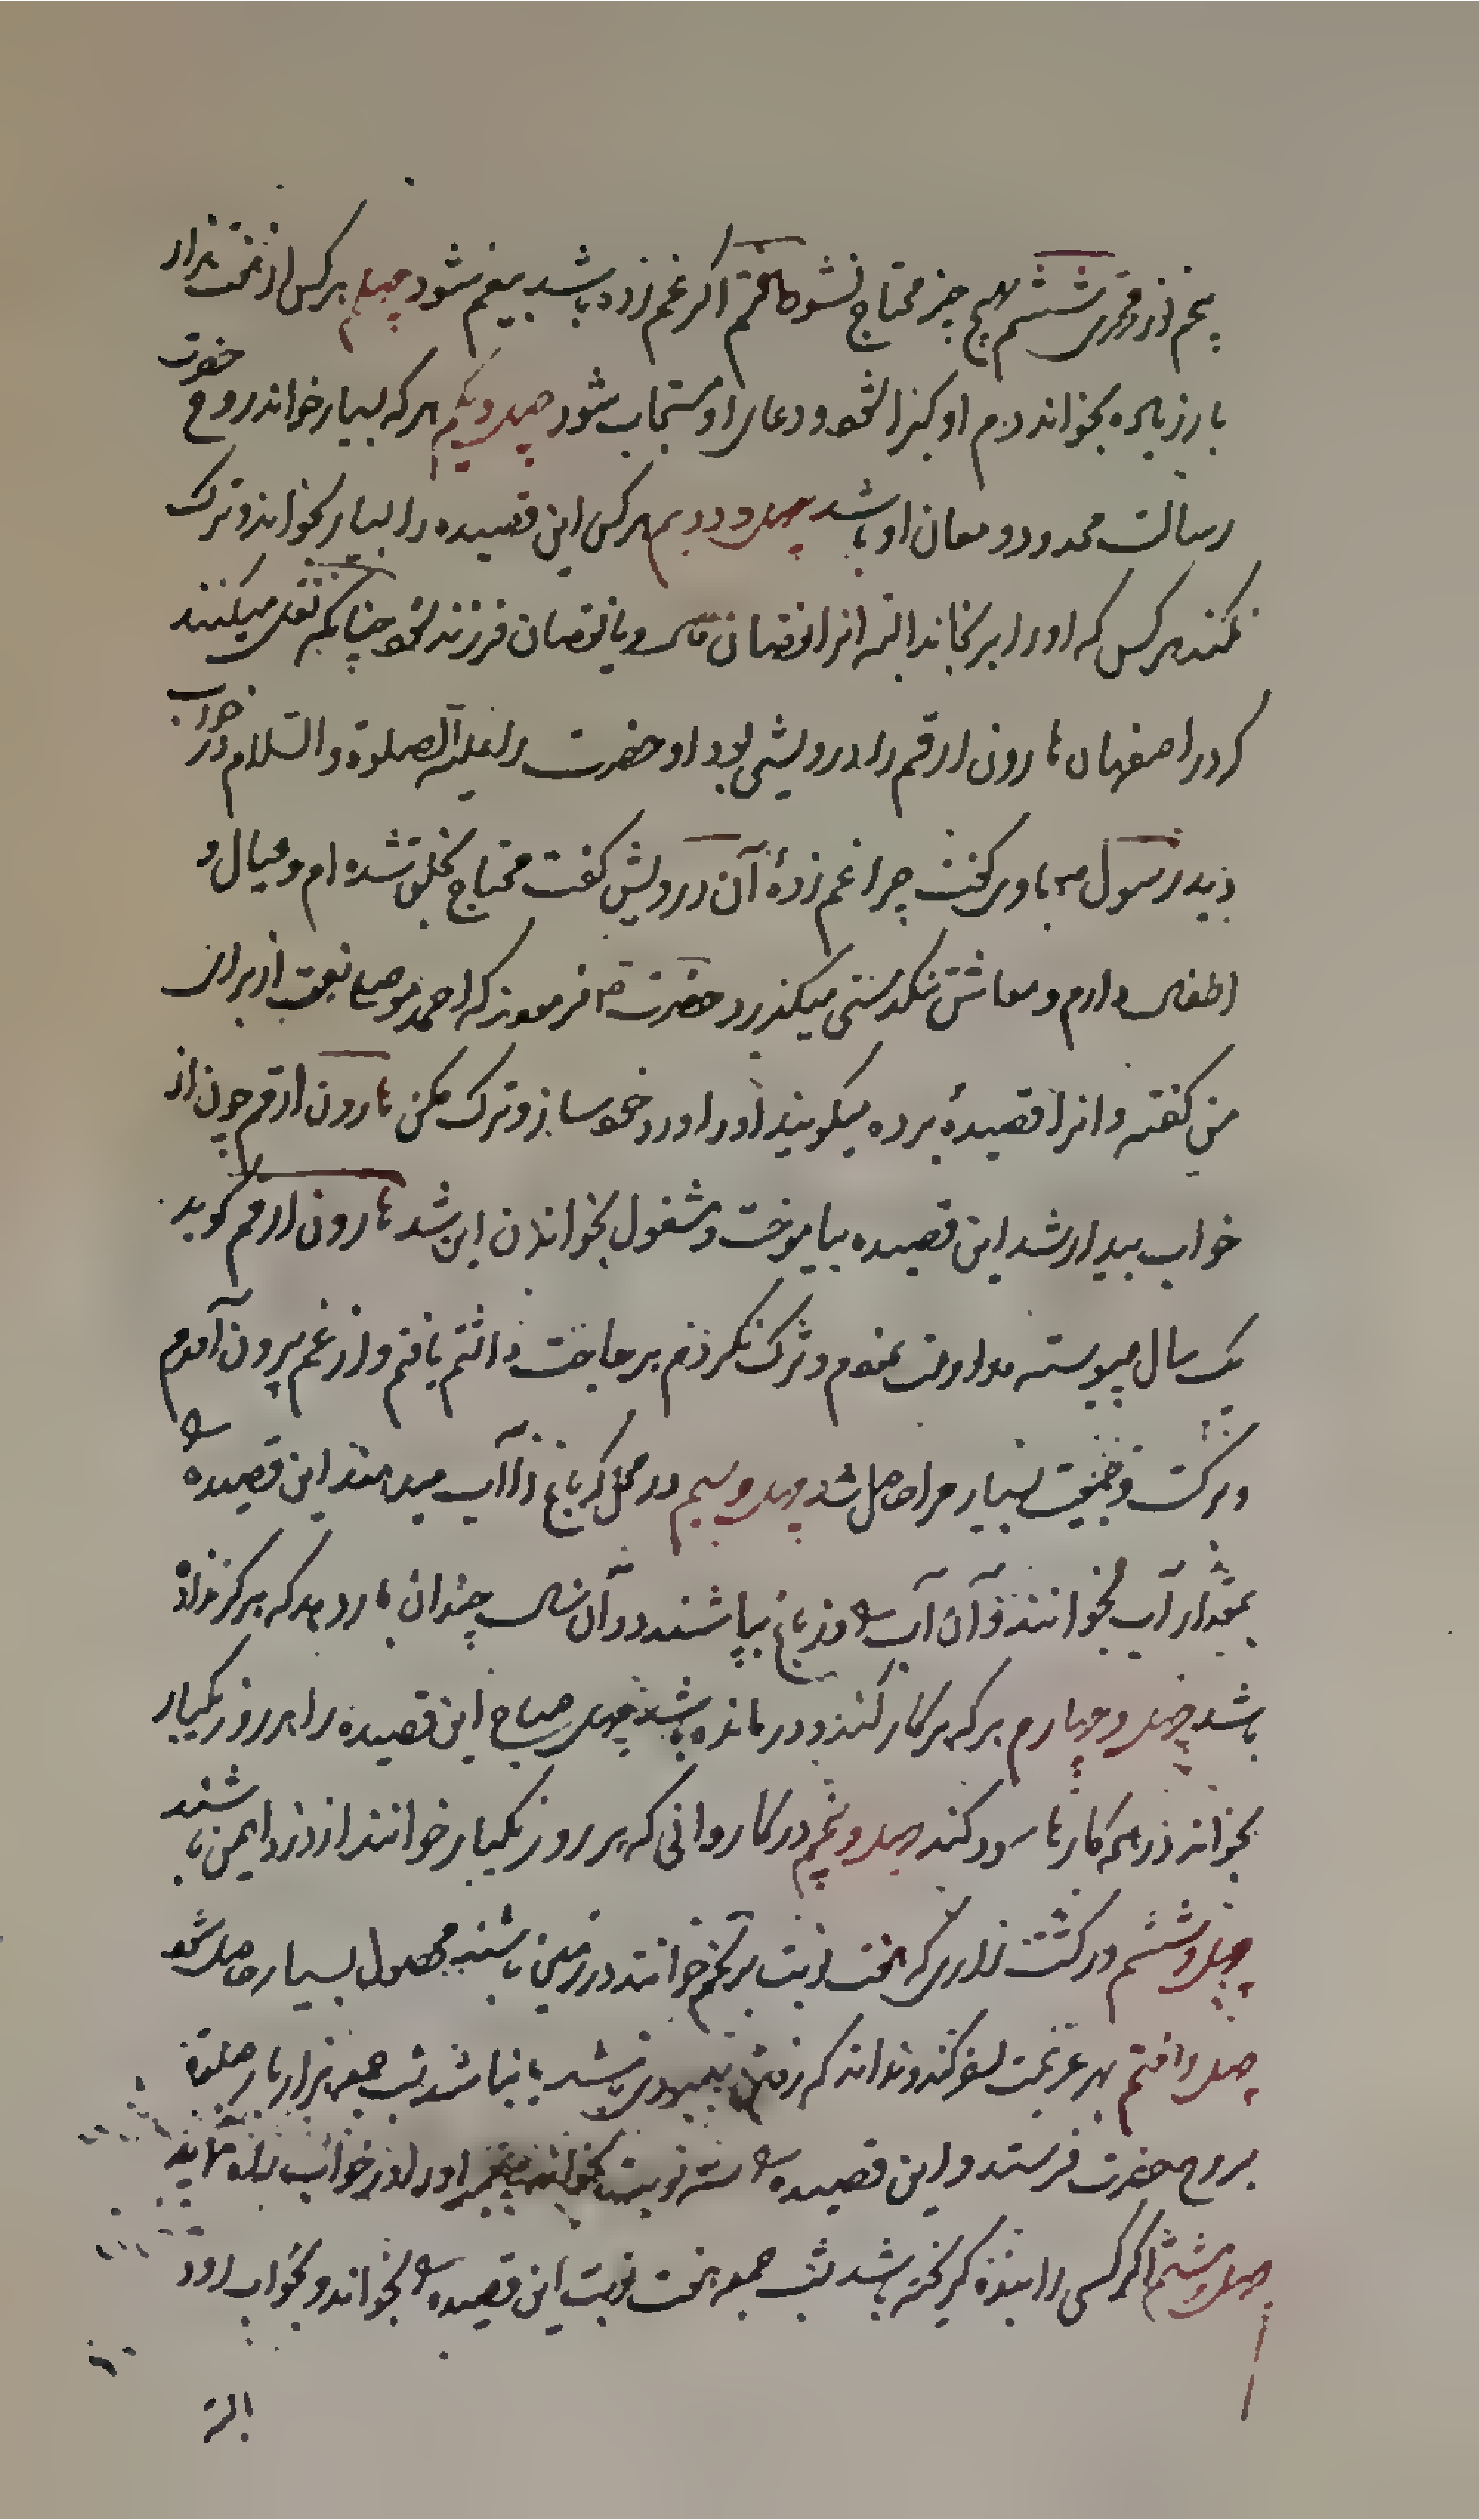 پنجم از درد قمری ششم بهیچ چیز محتاج نشود هفتم اگر غم زده باشد بیغم شود چهلم هرکس از هفت هزار
بار زیاده بخواند دم او کیرا شود و دعای او مستجاب شود چهل و یکم هرکه بسیار خواند روح حضرت
رسالت ممد و معاون او باشد چهل و دویم هرکس این قصیده را بسیار بخواند و ترک
نکند هرکس که او را برنجاند البته انرا نقصان مالی و یا نقصان فرزند شود چنانکه نقل میکنند
که در اصفهان هارون ارقم را درویشی بود او حضرت را علیه الصلوة والسلام در خواب
دید رسول م باوی گفت چرا غم زدۀ آن درویش گفت محتاج بخلق شده ام و عیال و
اطفالی دارم و معاش تنگدستی میگذرد حضرت م فرمود که احمد بوصیری نعت از برای
من گفته و انرا قصیدۀ برده میگویند او را ورد خود ساز و ترک مکن هارون ارقم چون از
خواب بیدار شد این قصیده بیاموخت و مشغول بخواندن این شد هارون ارقم گوید
یک سال پیوسته مداومت نمودم و ترک نکردم هر حاجت داشتم یافتم و از غم بیرون آمدم
و برکت و جمعیت بسیار مرا حاصل شد چهل و سیم در محل که باغ را آب میدهند این قصیده را
بمقدار آب بخوانند و آن آب را در باغ بپاشند در آن سال چندان بار دهد که هرگز نداده
باشد چهل و چهارم هرکه هر کار کند و درمانده باشد چهل صباح این قصیده را هر روز یکبار
بخواند در همه کارها سود کند چهل و پنجم در کاروانی که هر روز یکبار خوانند از دزد ایمن باشند
چهل و ششم در کشت زاری که هفت نوبت بر تخم خوانند در زمین پاشند محصول بسیار حاصل شود
چهل و هفتم هر عزیمت سفر کند و نداند که رفتن بهبودی باشد یا نباشد شب جمعه هزار بار صلوة
بروح حضرت فرستد و این قصیده را سه نوبت بخواند پیغمبر او را در خواب راه نماید
چهل و هشتم اگر کسی را بنده گریخته باشد شب جمعه هفت نوبت این قصیده را بخواند و بخواب رود
البته